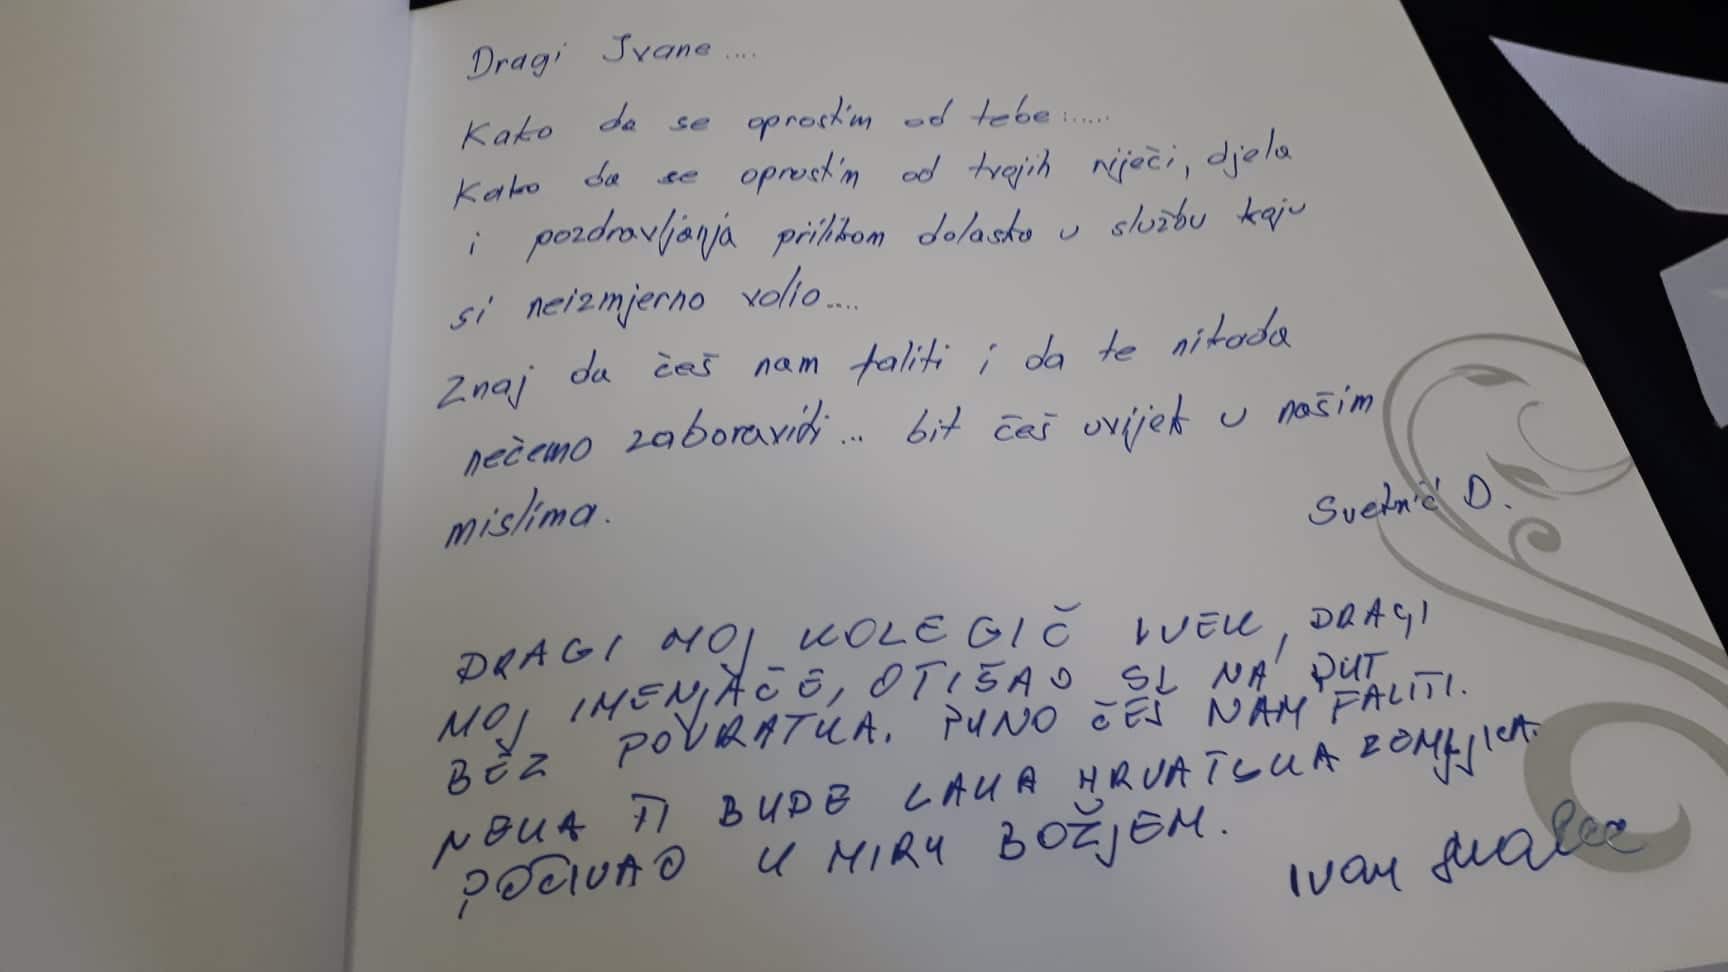 Dragi Ivane ....
Kako da se oprostim od tebe .....
Kako da se oprostim od tvojih riječi, djela
i pozdravljanja prilikom dolaska u službu koju
si neizmjerno volio....
Znaj da češ nam faliti i da te nikada
nečemo zaboraviti ... bit češ uvijek u našim
mislima.
Svetnič D.
DRAGI MOJ KOLEGIČ IVEK, DRAGI
MOJ IMENJAČE, OTIŠAO SI NA PUT
BEZ POVRATKA. PUNO ČEŠ NAM FALITI.
NEKA TI BUDE LAKA HRVATSKA ZEMLJICA.
POČIVAO U MIRU BOŽJEM.
IVAN